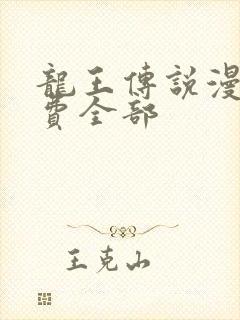 龍王傳說漫
費全部
王克山